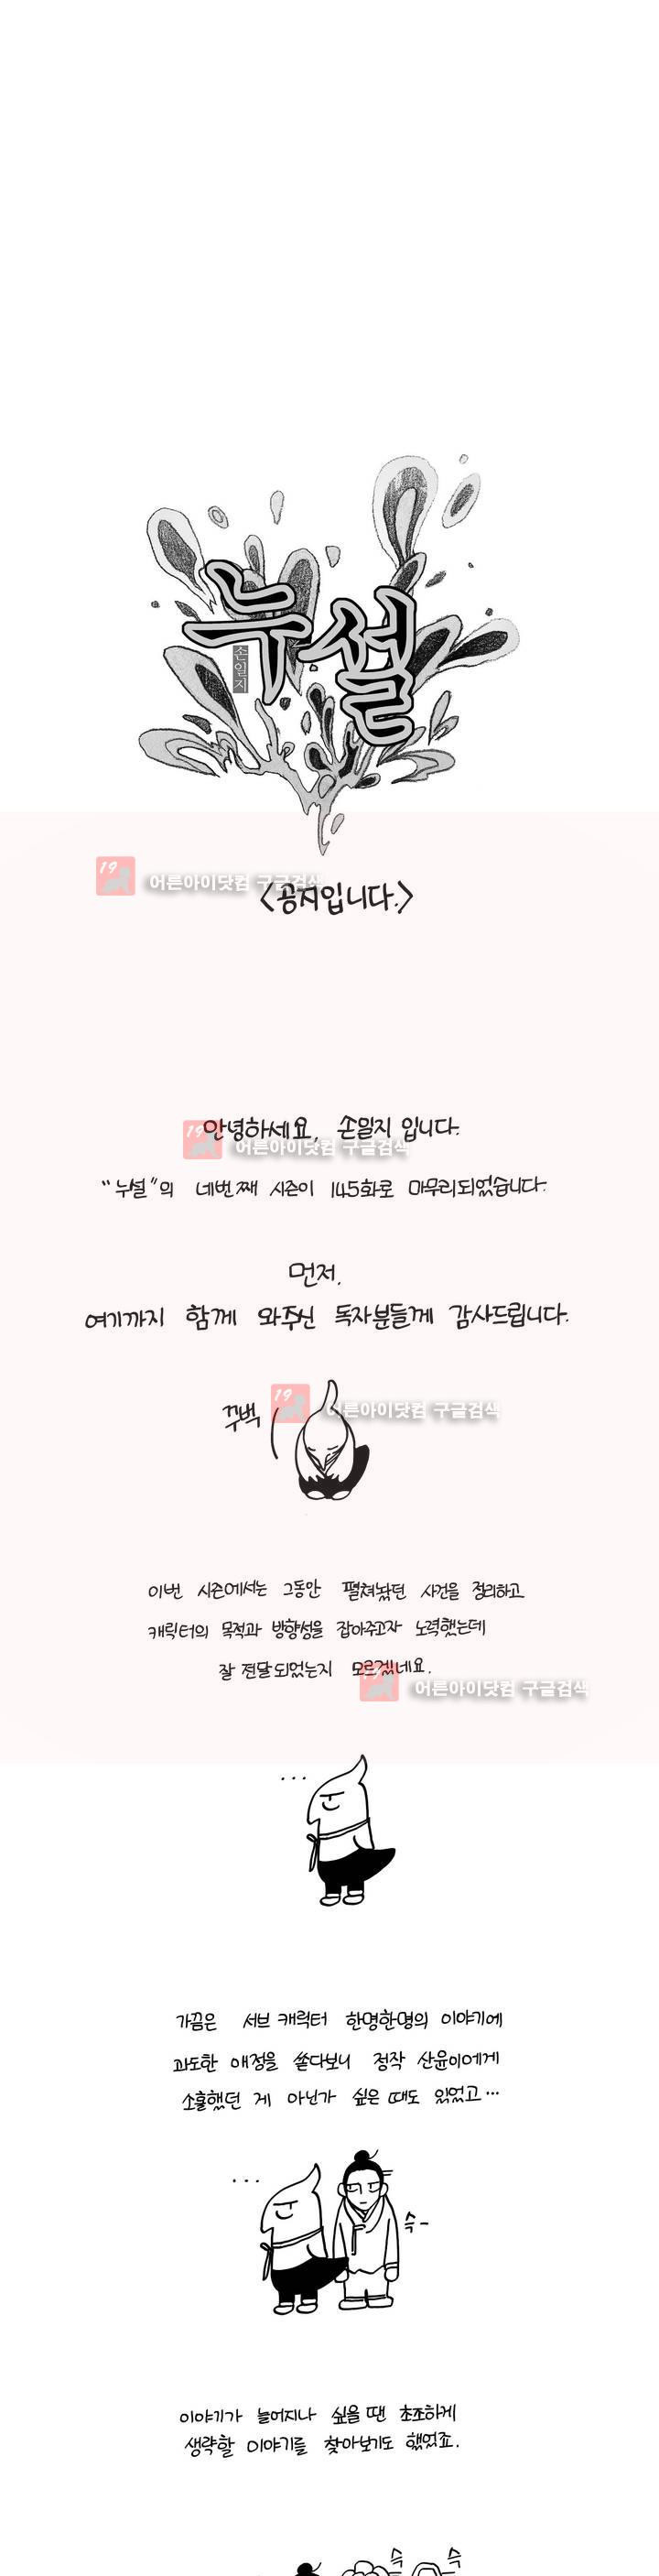 누설
손일지
19 어른아이닷컴 구글검색
<공지입니다.>
안녕하세요, 손일지 입니다.
19 어른아이닷컴 구글검색
"누설"의 네번째 시즌이 145화로 마무리되었습니다.
먼저,
여기까지 함께 와주신 독자분들께 감사드립니다.
꾸벅
19 어른아이닷컴 구글검색
이번 시즌에서는 그동안 펼쳐놨던 사건을 정리하고
캐릭터의 목적과 방향성을 잡아주고자 노력했는데
잘 전달되었는지 모르겠네요.
19 어른아이닷컴 구글검색
...
가끔은 서브 캐릭터 한명한명의 이야기에
과도한 애정을 쏟다보니 정작 산윤이에게
소홀했던 게 아닌가 싶은 때도 있었고...
...
슥-
이야기가 늘어지나 싶을 땐 초조하게
생략할 이야기를 찾아보기도 했었죠.
슥 슥